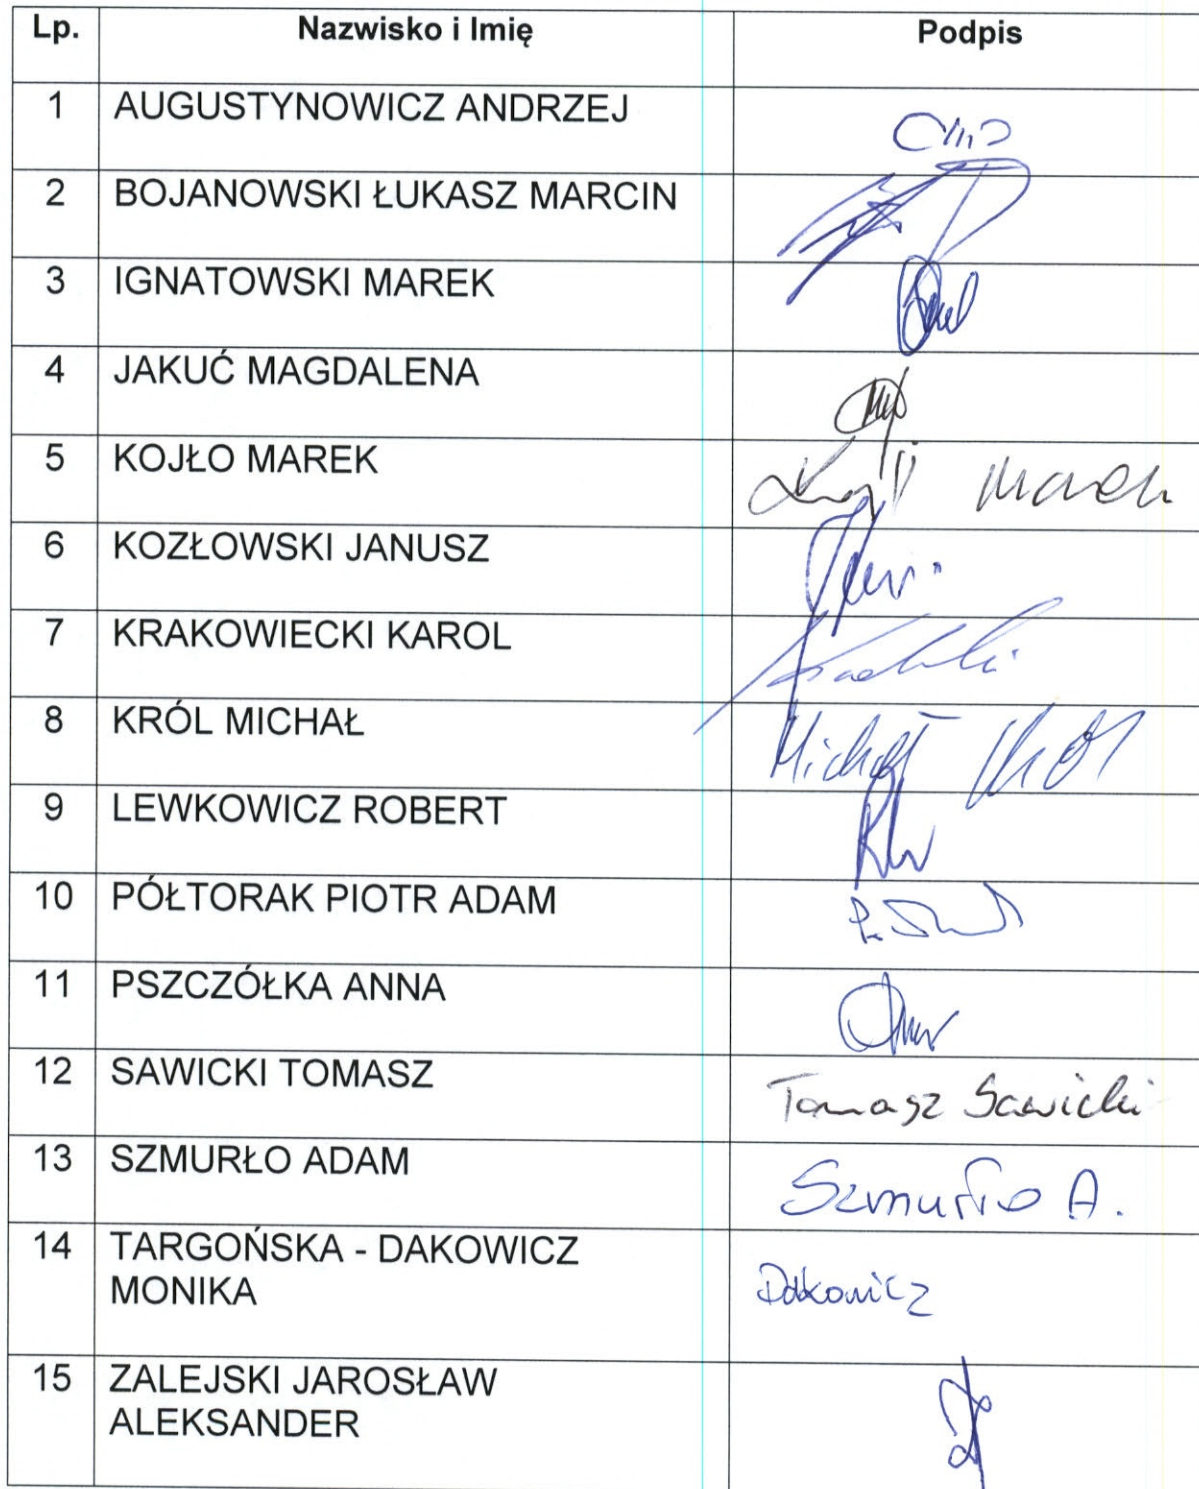 Lp. Nazwisko i Imię Podpis
1 AUGUSTYNOWICZ ANDRZEJ
2 BOJANOWSKI ŁUKASZ MARCIN
3 IGNATOWSKI MAREK
4 JAKUĆ MAGDALENA
5 KOJŁO MAREK Marek
6 KOZŁOWSKI JANUSZ
7 KRAKOWIECKI KAROL
8 KRÓL MICHAŁ Michał Król
9 LEWKOWICZ ROBERT
10 PÓŁTORAK PIOTR ADAM
11 PSZCZÓŁKA ANNA
12 SAWICKI TOMASZ Tomasz Sawicki
13 SZMURŁO ADAM Szmurło A.
14 TARGOŃSKA - DAKOWICZ
MONIKA
Dakowicz
15 ZALEJSKI JAROSŁAW
ALEKSANDER